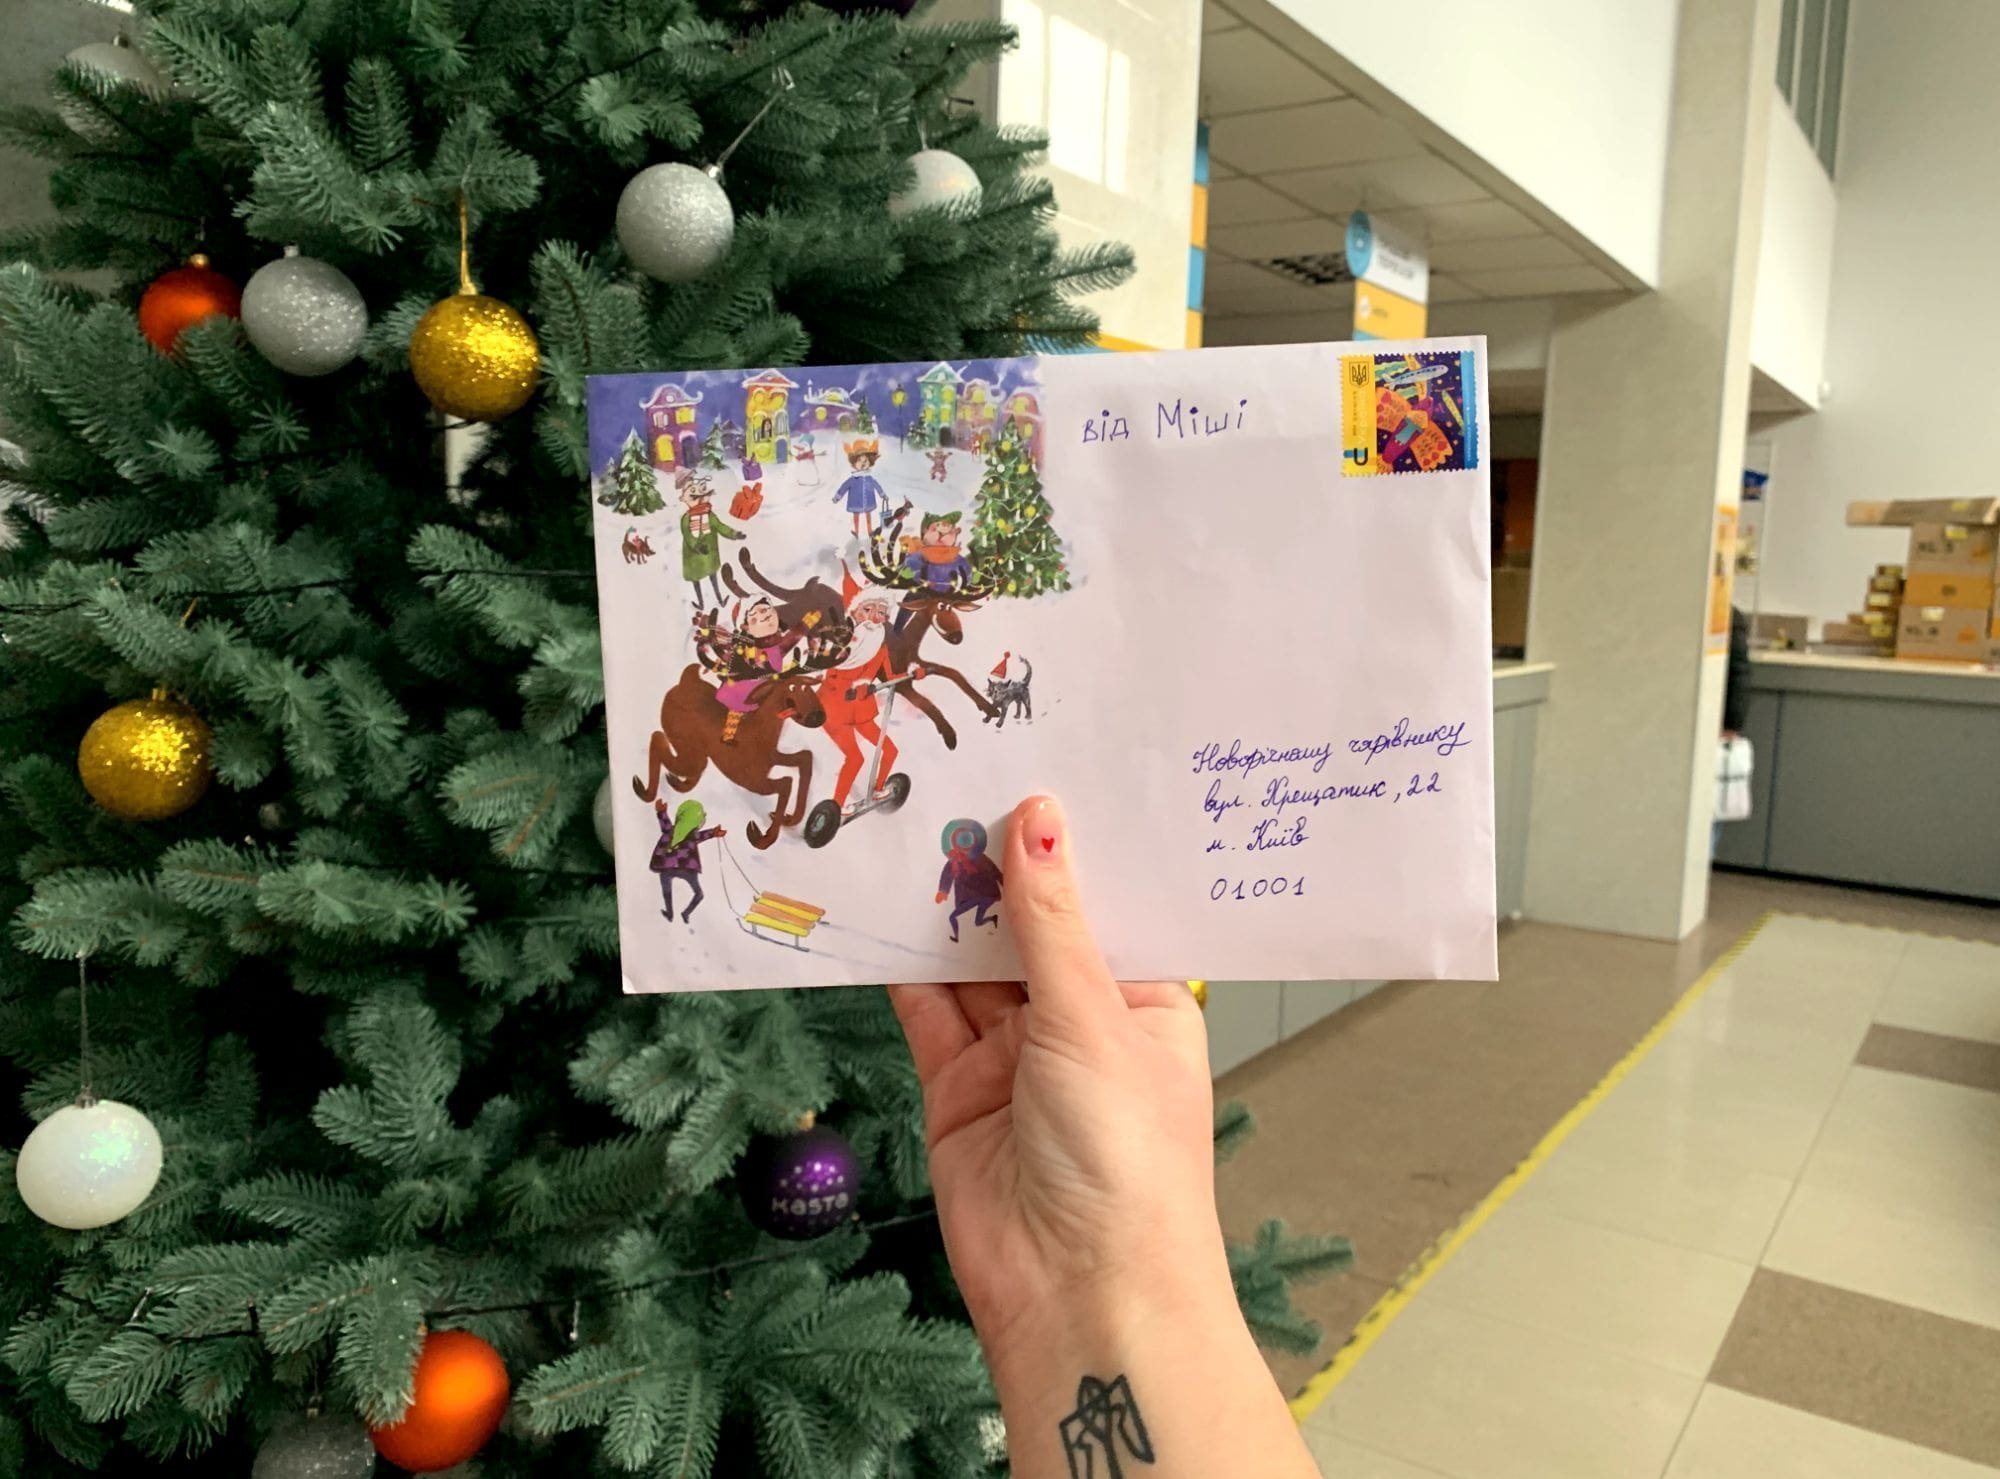 від Міші
U
Новорічному чарівнику
вул. Хрещатик, 22
м. Київ
01001
kasta